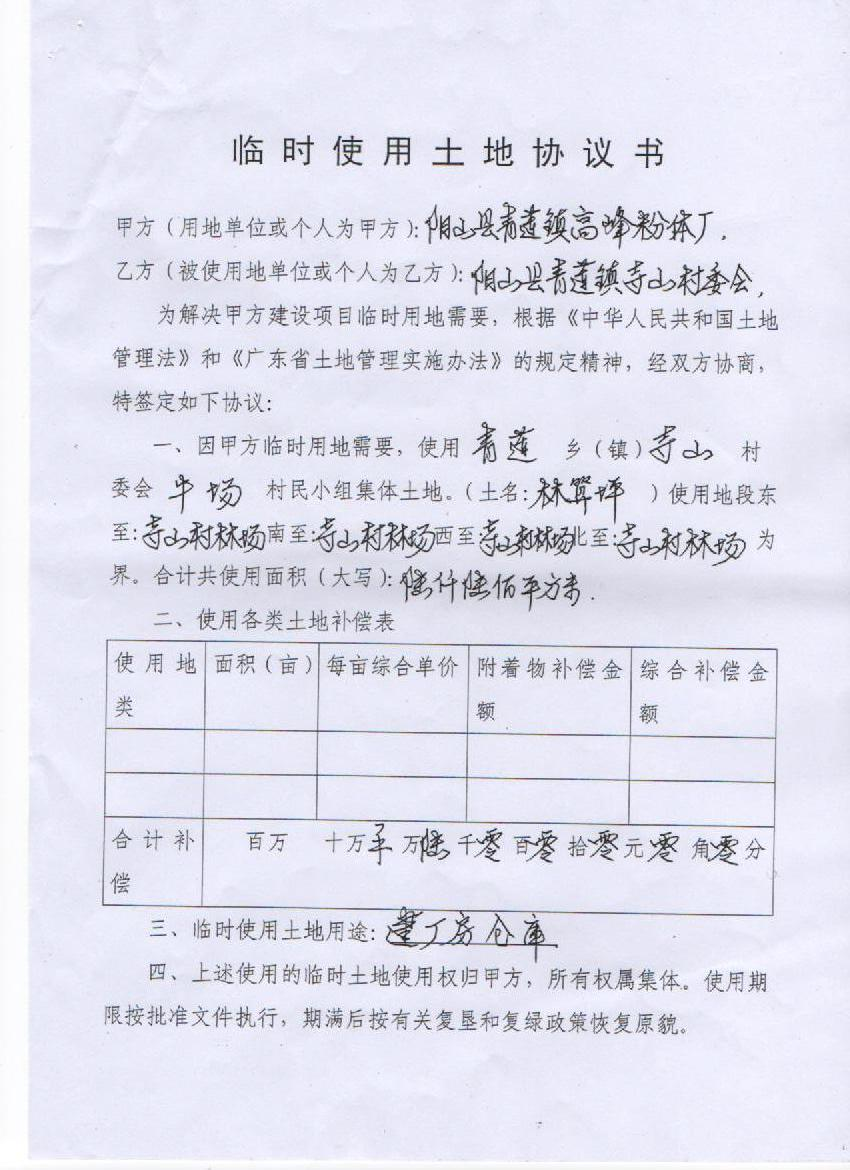 临时使用土地协议书
甲方(用地单位或个人为甲方):阳山县青莲镇高峰粉体厂.
乙方(被使用地单位或个人为乙方):阳山县青莲镇寺山村委会,
为解决甲方建设项目临时用地需要,根据《中华人民共和国土地
管理法》和《广东省土地管理实施办法》的规定精神,经双方协商,
特签定如下协议:
一、因甲方临时用地需要,使用 青莲 乡(镇)寺山 村
委会 牛场 村民小组集体土地。(土名:林算坪 )使用地段东
至:寺山村林场南至:寺山村林场西至寺山村林场北至:寺山村林场 为
界。合计共使用面积(大写):陆仟陆佰平方米.
二、使用各类土地补偿表
使用地 面积(亩) 每亩综合单价 附着物补偿金 综合补偿金
类 额 额
合计补 百万 十万 万陆千零百零拾零元零角零分
偿
三、临时使用土地用途:建厂房仓库
四、上述使用的临时土地使用权归甲方,所有权属集体。使用期
限按批准文件执行,期满后按有关复垦和复绿政策恢复原貌。